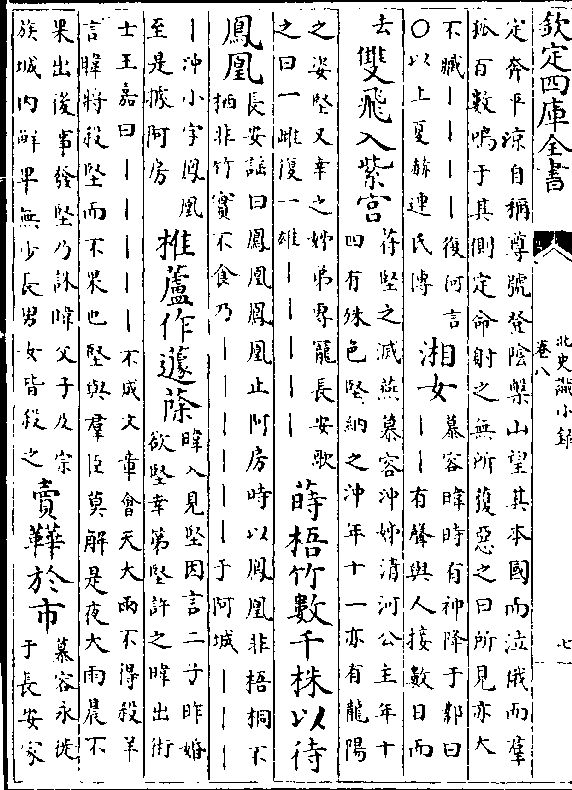 欽定四庫全書
北史識小錄
卷八
七
定奔平涼自稱尊號登陰槃山望其本國而泣俄而羣
狐百數鳴于其側定命射之無所獲惡之曰所見亦大
不臧｜｜｜｜復何言
○以上夏赫連氏傳
湘女
慕容暐時有神降于鄴曰
｜｜有聲與人接數日而
去
雙飛入紫宮
苻堅之滅燕慕容沖姊清河公主年十
四有殊色堅納之沖年十一亦有龍陽
之姿堅又幸之姊弟專寵長安歌
之曰一雌復一雄｜｜｜｜｜
蒔梧竹數千株以待
鳳凰
長安謠曰鳳凰鳳凰止阿房時以鳳凰非梧桐不
栖非竹實不食乃｜｜｜｜｜｜于阿城｜｜｜
｜沖小字鳳凰
至是據阿房
推蘆作蘧蒢
暐入見堅因言二子昨婚
欲堅幸第堅許之暐出術
士王嘉曰｜｜｜｜｜不成文章會天大雨不得殺羊
言暐將殺堅而不果也堅與羣臣莫解是夜大雨晨不
果出後事發堅乃誅暐父子及宗
族城内鮮卑無少長男女皆殺之
賣鞾於市
慕容永徙
于長安家